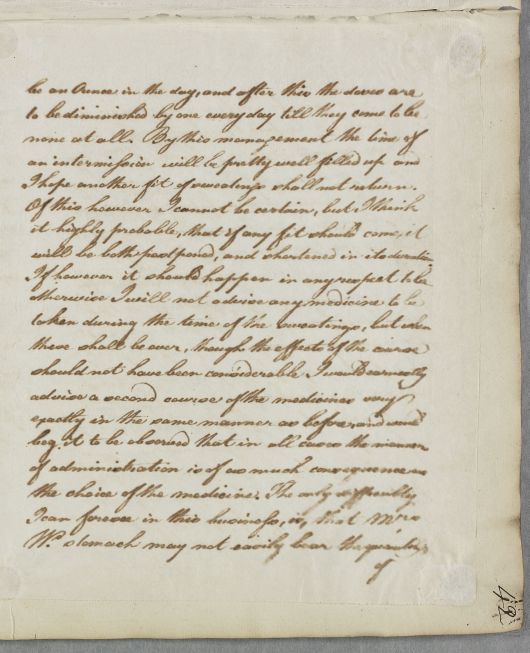 be an Ounce in the day, and after this the doses are
to be diminished by one every day till they come to be
none at all. By this management the time of
an intermission will be pretty well filled up and
I hope another fit of sweatings shall not return.
Of this however I cannot be certain, but I think
it highly probable, that if any fit should come, it
will be both postponed, and shortened in its duration
If however it should happen in any respect to be
otherwise I will not advise any medicine to be
taken during the time of the sweatings, but when
these shall be over, though the effects of the course
should not have been considerable I would earnestly
advise a second course of the medicines very
exactly in the same manner as before, and would
beg it to be observed that in all cases the manner
of administration is of as much consequence as
the choice of the medicine. The only difficulty
I can foresee in this business, is, that Mrs
W.s stomach may not easily bear the quantity
of
49